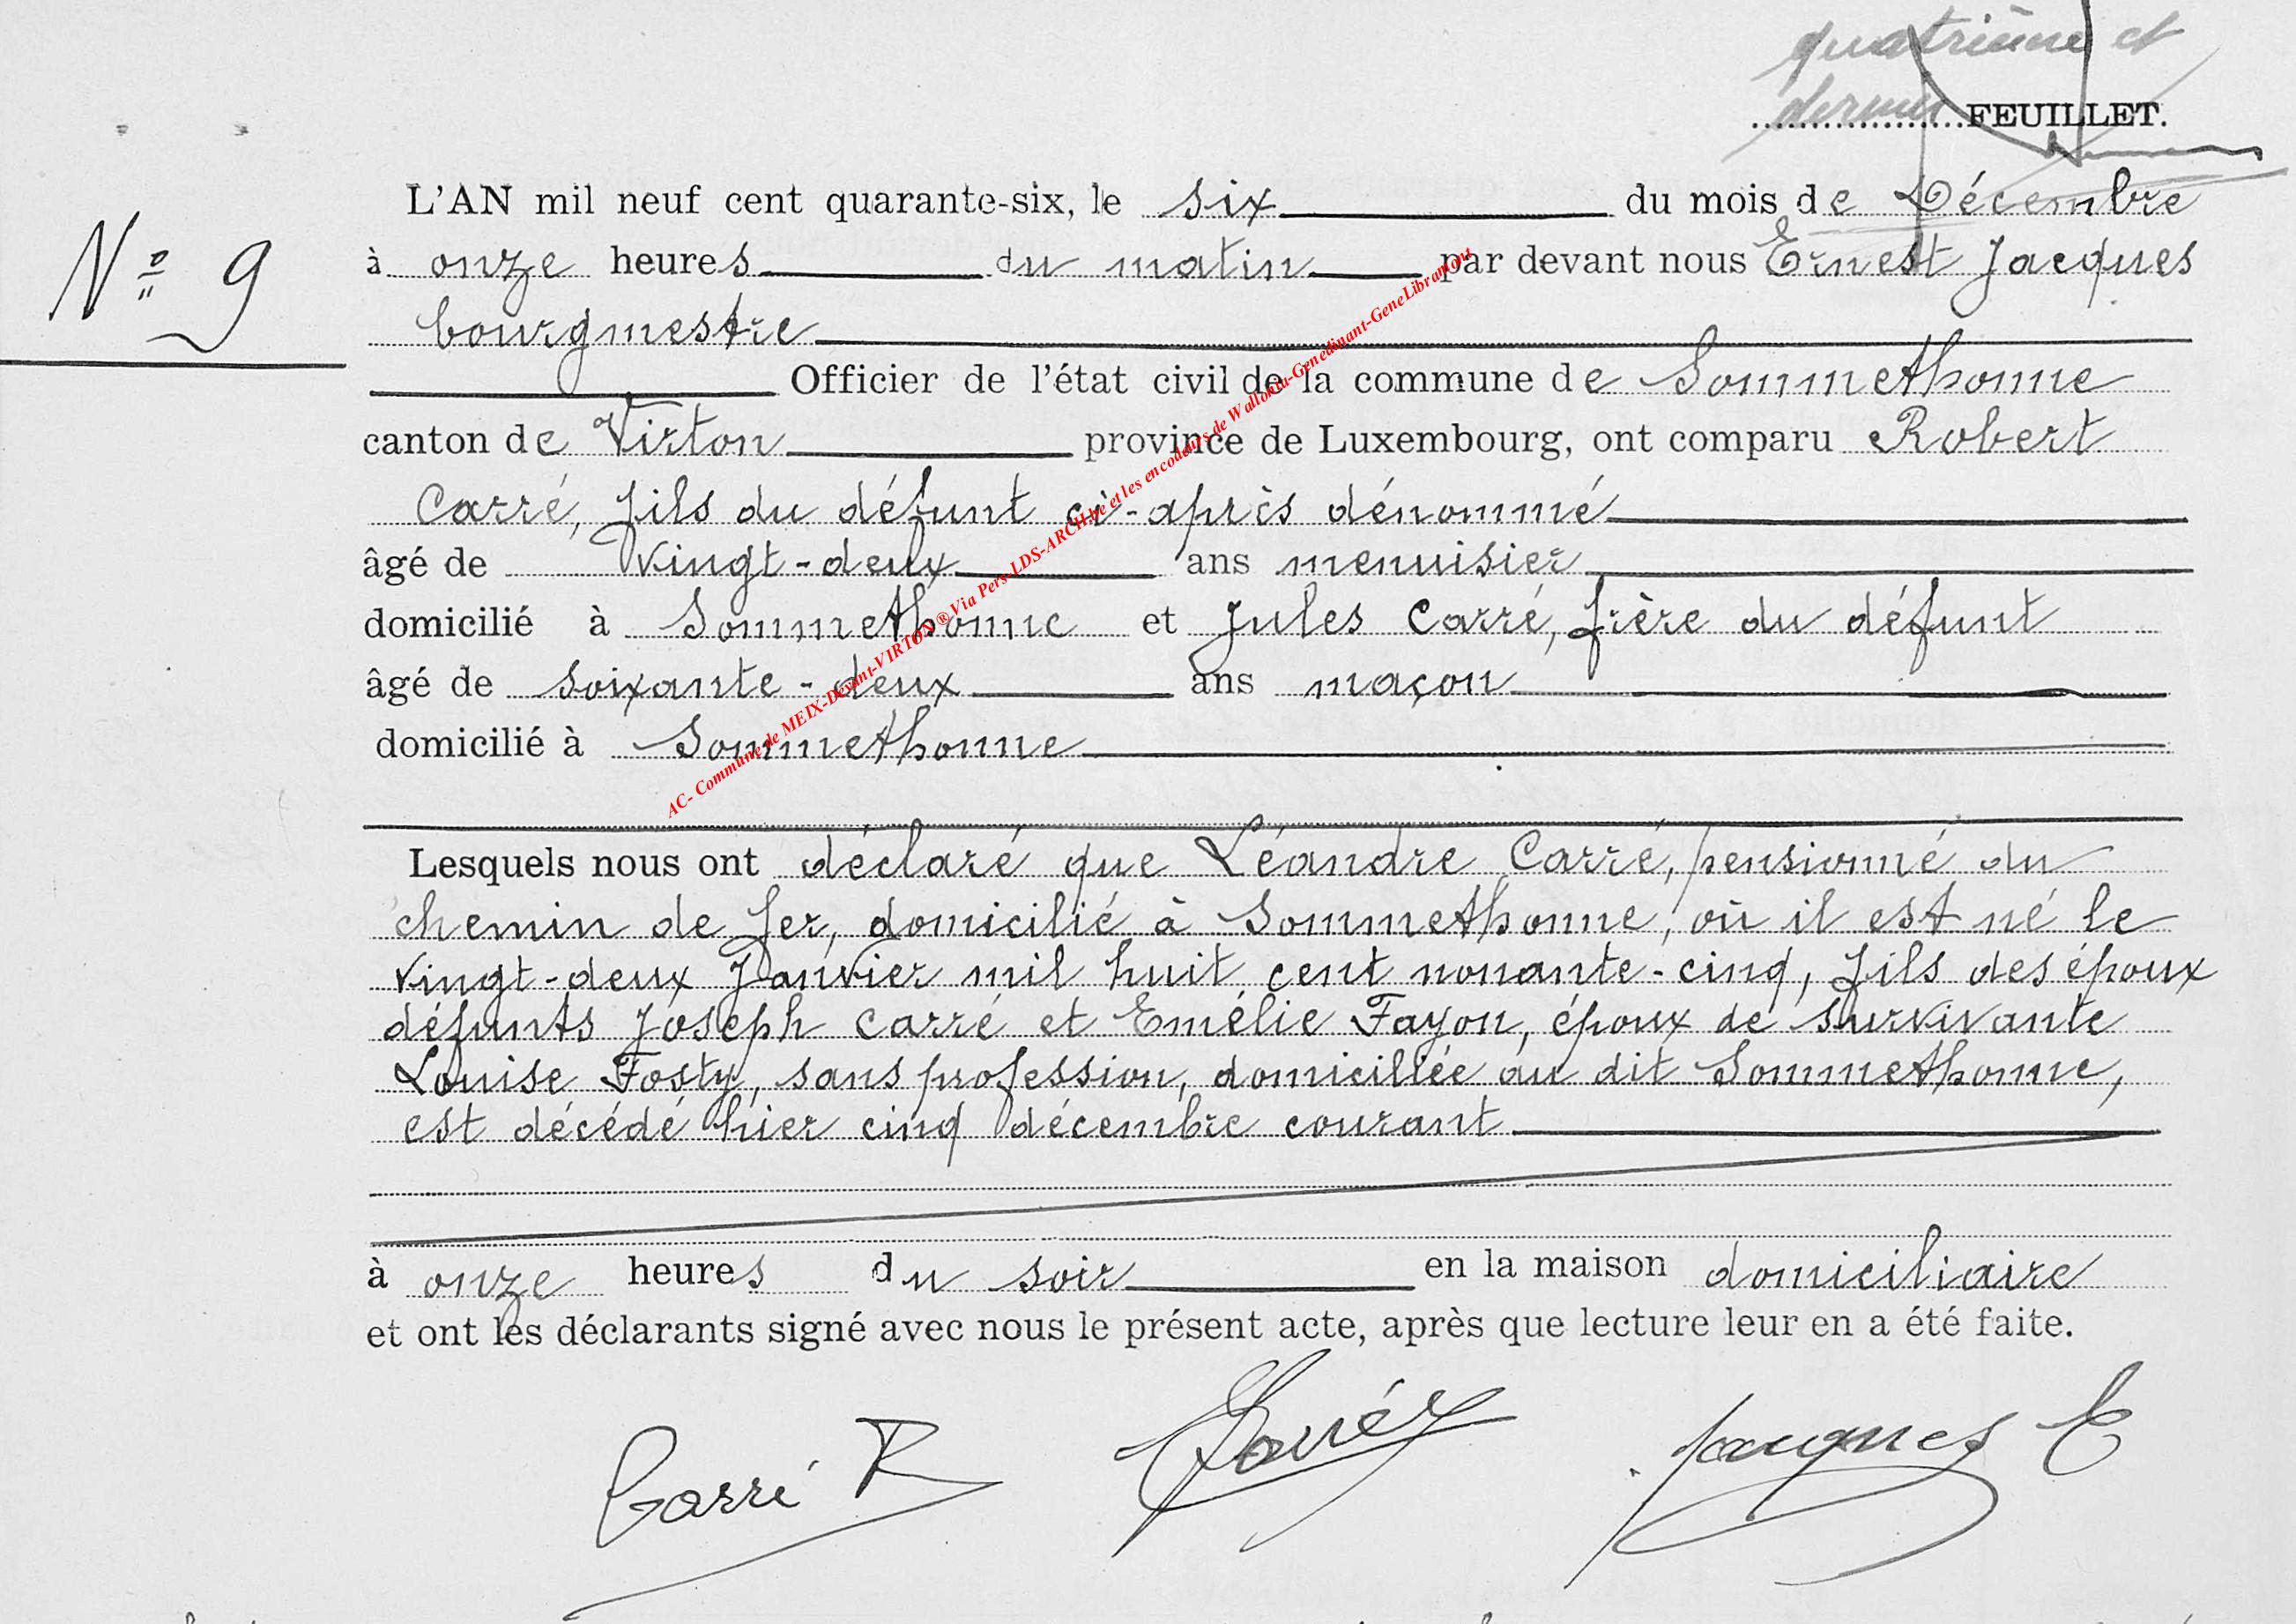 quatrième et
dernier FEUILLET.
L'AN mil neuf cent quarante-six, le six du mois de Décembre
N° 9
à onze heures du matin par devant nous Ernest Jacques
bourgmestre
Officier de l'état civil de la commune de Sommethonne
canton de Virton province de Luxembourg, ont comparu Robert
Carré, fils du défunt ci-après dénommé
âgé de vingt-deux ans menuisier
domicilié à Sommethonne et Jules Carré, frère du défunt
âgé de soixante-deux ans maçon
domicilié à Sommethonne
AC- Commune de MEIX-Devant-VIRTON® Via Pers-LDS-ARCH.be et les encodeurs de Wallonia-Genedinant-GeneLibramont
Lesquels nous ont déclaré que Léandre Carré, pensionné du
chemin de fer, domicilié à Sommethonne, où il est né le
vingt-deux Janvier mil huit cent nonante-cinq, fils des époux
défunts Joseph Carré et Emélie Fayon, époux de survivante
Louise Fosty, sans profession, domiciliée au dit Sommethonne,
est décédé hier cinq décembre courant
à onze heures du soir en la maison domiciliaire
et ont les déclarants signé avec nous le présent acte, après que lecture leur en a été faite.
Carré R Jacques E